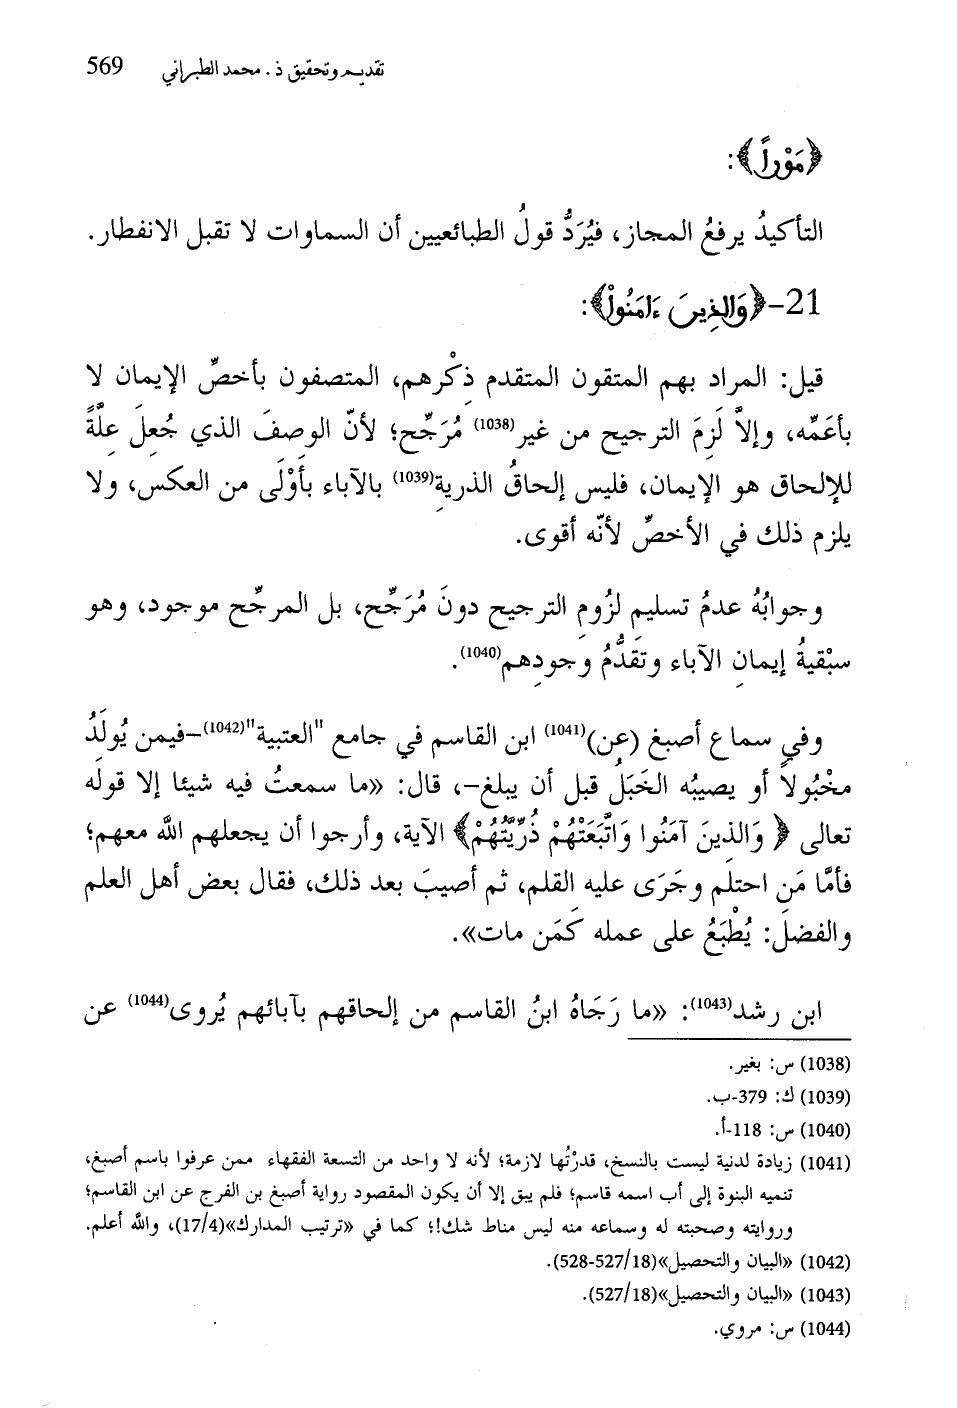 تقديم وتحقيق ذ. محمد الطبراني 569
﴿مَوْراً﴾:
التأكيدُ يرفعُ المجاز، فيُرَدُّ قولُ الطبائعيين أن السماوات لا تقبل الانفطار.
21-﴿وَالذِينَ ءَامَنُواْ﴾:
قيل: المراد بهم المتقون المتقدم ذِكْرهم، المتصفون بأخصِّ الإيمان لا
بأعَمِّه، وإلاَّ لَزِمَ الترجيح من غير(1038) مُرَجِّح؛ لأنّ الوصفَ الذي جُعِلَ عِلَّةً
للإلحاق هو الإيمان، فليس إلحاقُ الذرية(1039) بالآباء بأوْلَى من العكس، ولا
يلزم ذلك في الأخصِّ لأنّه أقوى.
وجوابُهُ عدمُ تسليم لزُومِ الترجيح دونَ مُرَجِّح، بل المرجِّح موجود، وهو
سبْقيةُ إيمانِ الآباء وتقدُّمُ وجودِهم(1040).
وفي سماع أصبغ (عن)(1041) ابن القاسم في جامع "العتبية"(1042)–فيمن يُولَدُ
مخْبُولاً أو يصيبُه الخَبَلُ قبل أن يبلغ–، قال: «ما سمعتُ فيه شيئا إلا قولَه
تعالى ﴿ وَالذينَ آمَنُوا وَاتَّبَعَتْهُمْ ذُرِّيَّتُهُمْ﴾ الآية، وأرجوا أن يجعلهم الله معهم؛
فأمَّا مَن احتلم وجَرَى عليه القلم، ثم أصيبَ بعد ذلك، فقال بعض أهل العلم
والفضل: يُطْبَعُ على عمله كَمَن مات».
ابن رشد(1043): «ما رَجَاهُ ابنُ القاسم من إلحاقهم بآبائهم يُروى(1044) عن
(1038) س: بغير.
(1039) ك: 379-ب.
(1040) س: 118-أ.
(1041) زيادة لدنية ليست بالنسخ، قدرْتُها لازمة؛ لأنه لا واحد من التسعة الفقهاء ممن عرفوا باسم أصبغ،
تنميه البنوة إلى أب اسمه قاسم؛ فلم يبق إلا أن يكون المقصود رواية أصبغ بن الفرج عن ابن القاسم؛
وروايته وصحبته له وسماعه منه ليس مناط شك!؛ كما في «ترتيب المدارك»(17/4)، والله أعلم.
(1042) «البيان والتحصيل»(527/18-528).
(1043) «البيان والتحصيل»(527/18).
(1044) س: مروي.